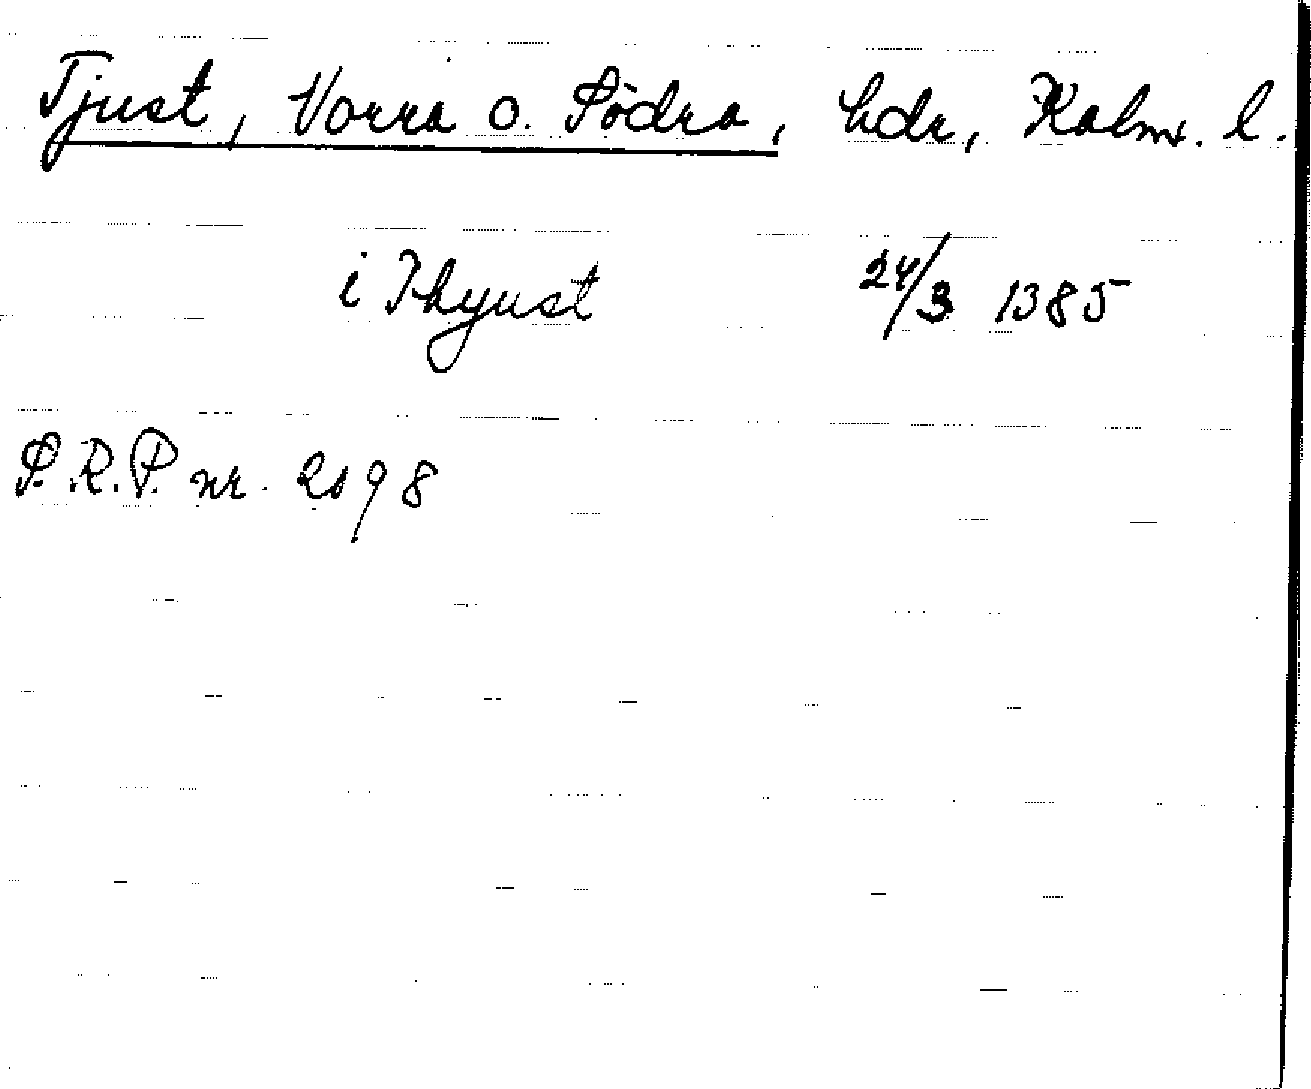 Tjust, Norra o. Södra, hdr, Kalm. l.
i Thyust 24/3 1385
S.R.P. nr. 2198